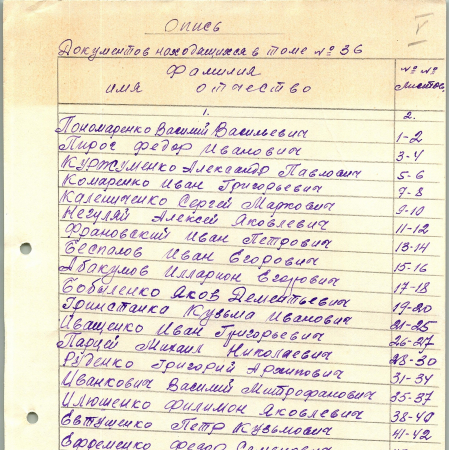 V
Опись
Документов находящихся в томе № 36
Фамилия
имя отчество
№ №
листов
1. 2.
Пономаренко Василий Васильевич 1-2
Пирос Федор Иванович 3-4
Куржуменко Александр Павлович 5-6
Комаренко Иван Григорьевич 7-8
Калениченко Сергей Маркович 9-10
Негуляй Алексей Яковлевич 11-12
Франовский Иван Петрович 13-14
Беспалов Иван Егорович 15-16
Абакумов Илларион Егорович 17-18
Бобыленко Яков Дементьевич 19-20
Гринстанка Кузьма Иванович 21-25
Иващенко Иван Григорьевич 26-27
Парцей Михаил Николаевич 28-30
Руденко Григорий Архипович 31-34
Иванкович Василий Митрофанович 35-37
Илюшенко Филимон Яковлевич 38-49
Евтушенко Петр Кузьмович 41-42
Ефременко Федор Семенович